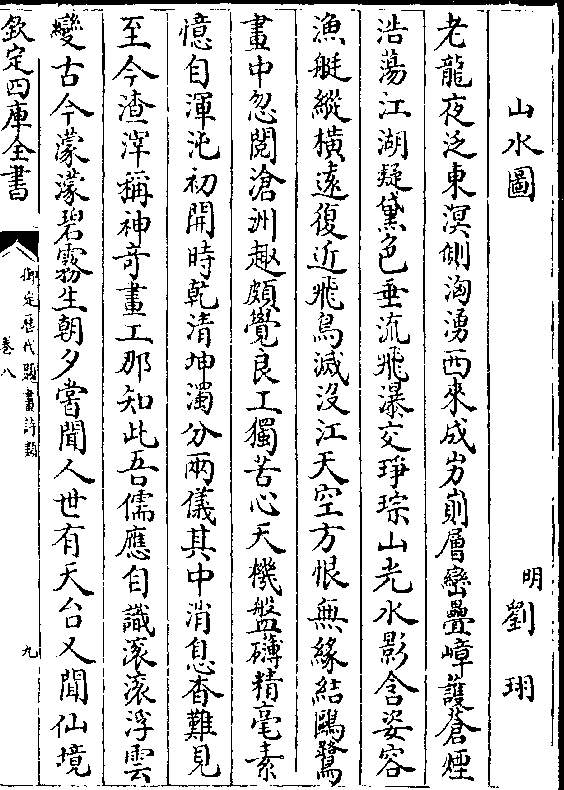 山水圖
明劉珝
老龍夜泛東溟側洶湧西來成岃崱層巒疊嶂護蒼煙
浩蕩江湖凝黛色垂流飛瀑交琤琮山光水影含姿容
漁艇縱橫遠復近飛鳥滅沒江天空方恨無緣結鷗鷺
畫中忽閱滄洲趣頗覺良工獨苦心天機盤礴精毫素
憶自渾沌初開時乾清坤濁分兩儀其中消息杳難見
至今渣滓稱神奇畫工那知此吾儒應自識滚滚浮雲
變古今濛濛碧霧生朝夕嘗聞人世有天台又聞仙境
欽定四庫全書
御定歷代題畫詩類
卷八
九